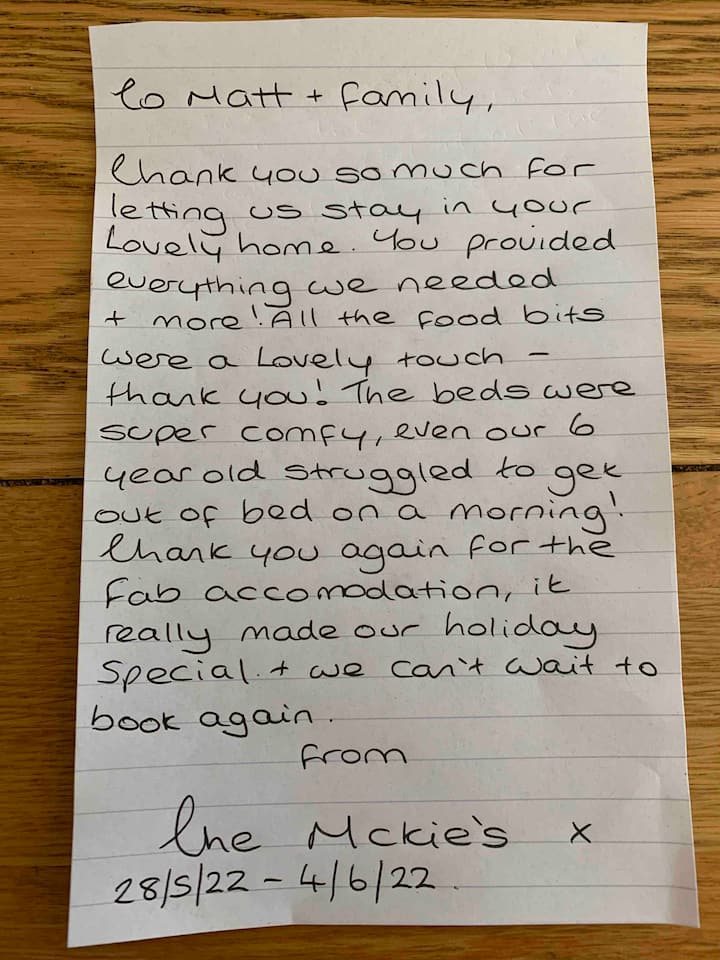 To Matt + family,
Thank you so much for
letting us stay in your
Lovely home. You provided
everything we needed
+ more! All the food bits
were a Lovely touch –
thank you! The beds were
super comfy, even our 6
year old struggled to get
out of bed on a morning!
Thank you again for the
fab accomodation, it
really made our holiday
special. + we can't wait to
book again.
from
The Mckie's x
28/5/22 – 4/6/22.